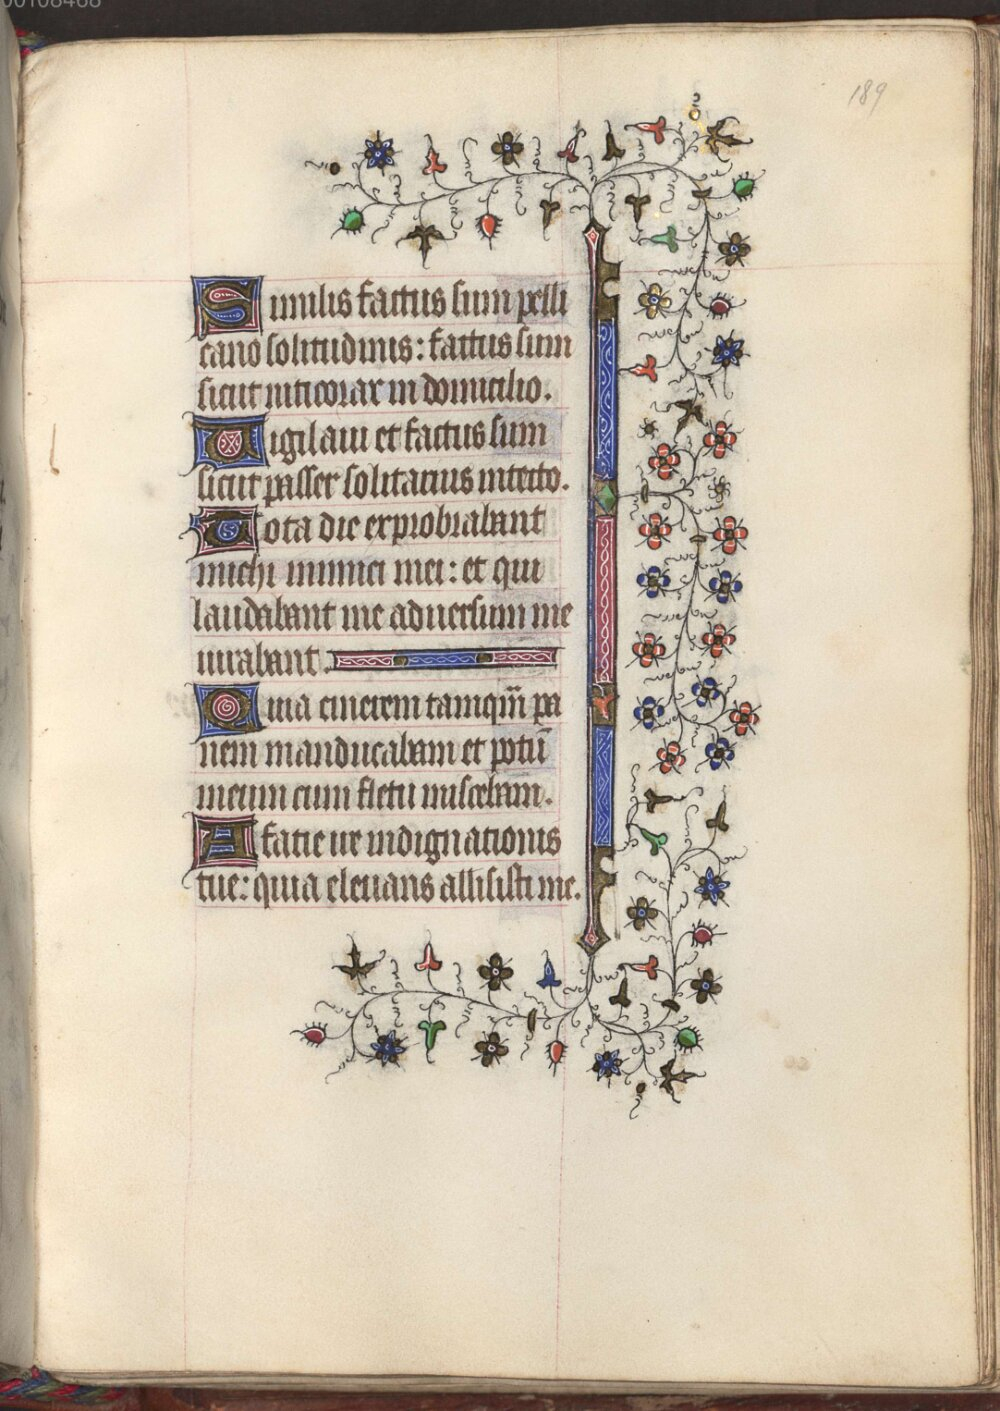 00108468
189
Similis factus sum pelli
cano solitudinis: factus sum
sicut niticorax in domicilio.
Vigilaui et factus sum
sicut passer solitarius intecto.
Tota die exprobrabant
michi inimici mei: et qui
laudabant me aduersum me
iurabant.
Quia cinerem tamqm̄ pa
nem manducabam et potū
meum cum fletu miscebam.
A facie ire indignationis
tue: quia eleuans allisisti me.